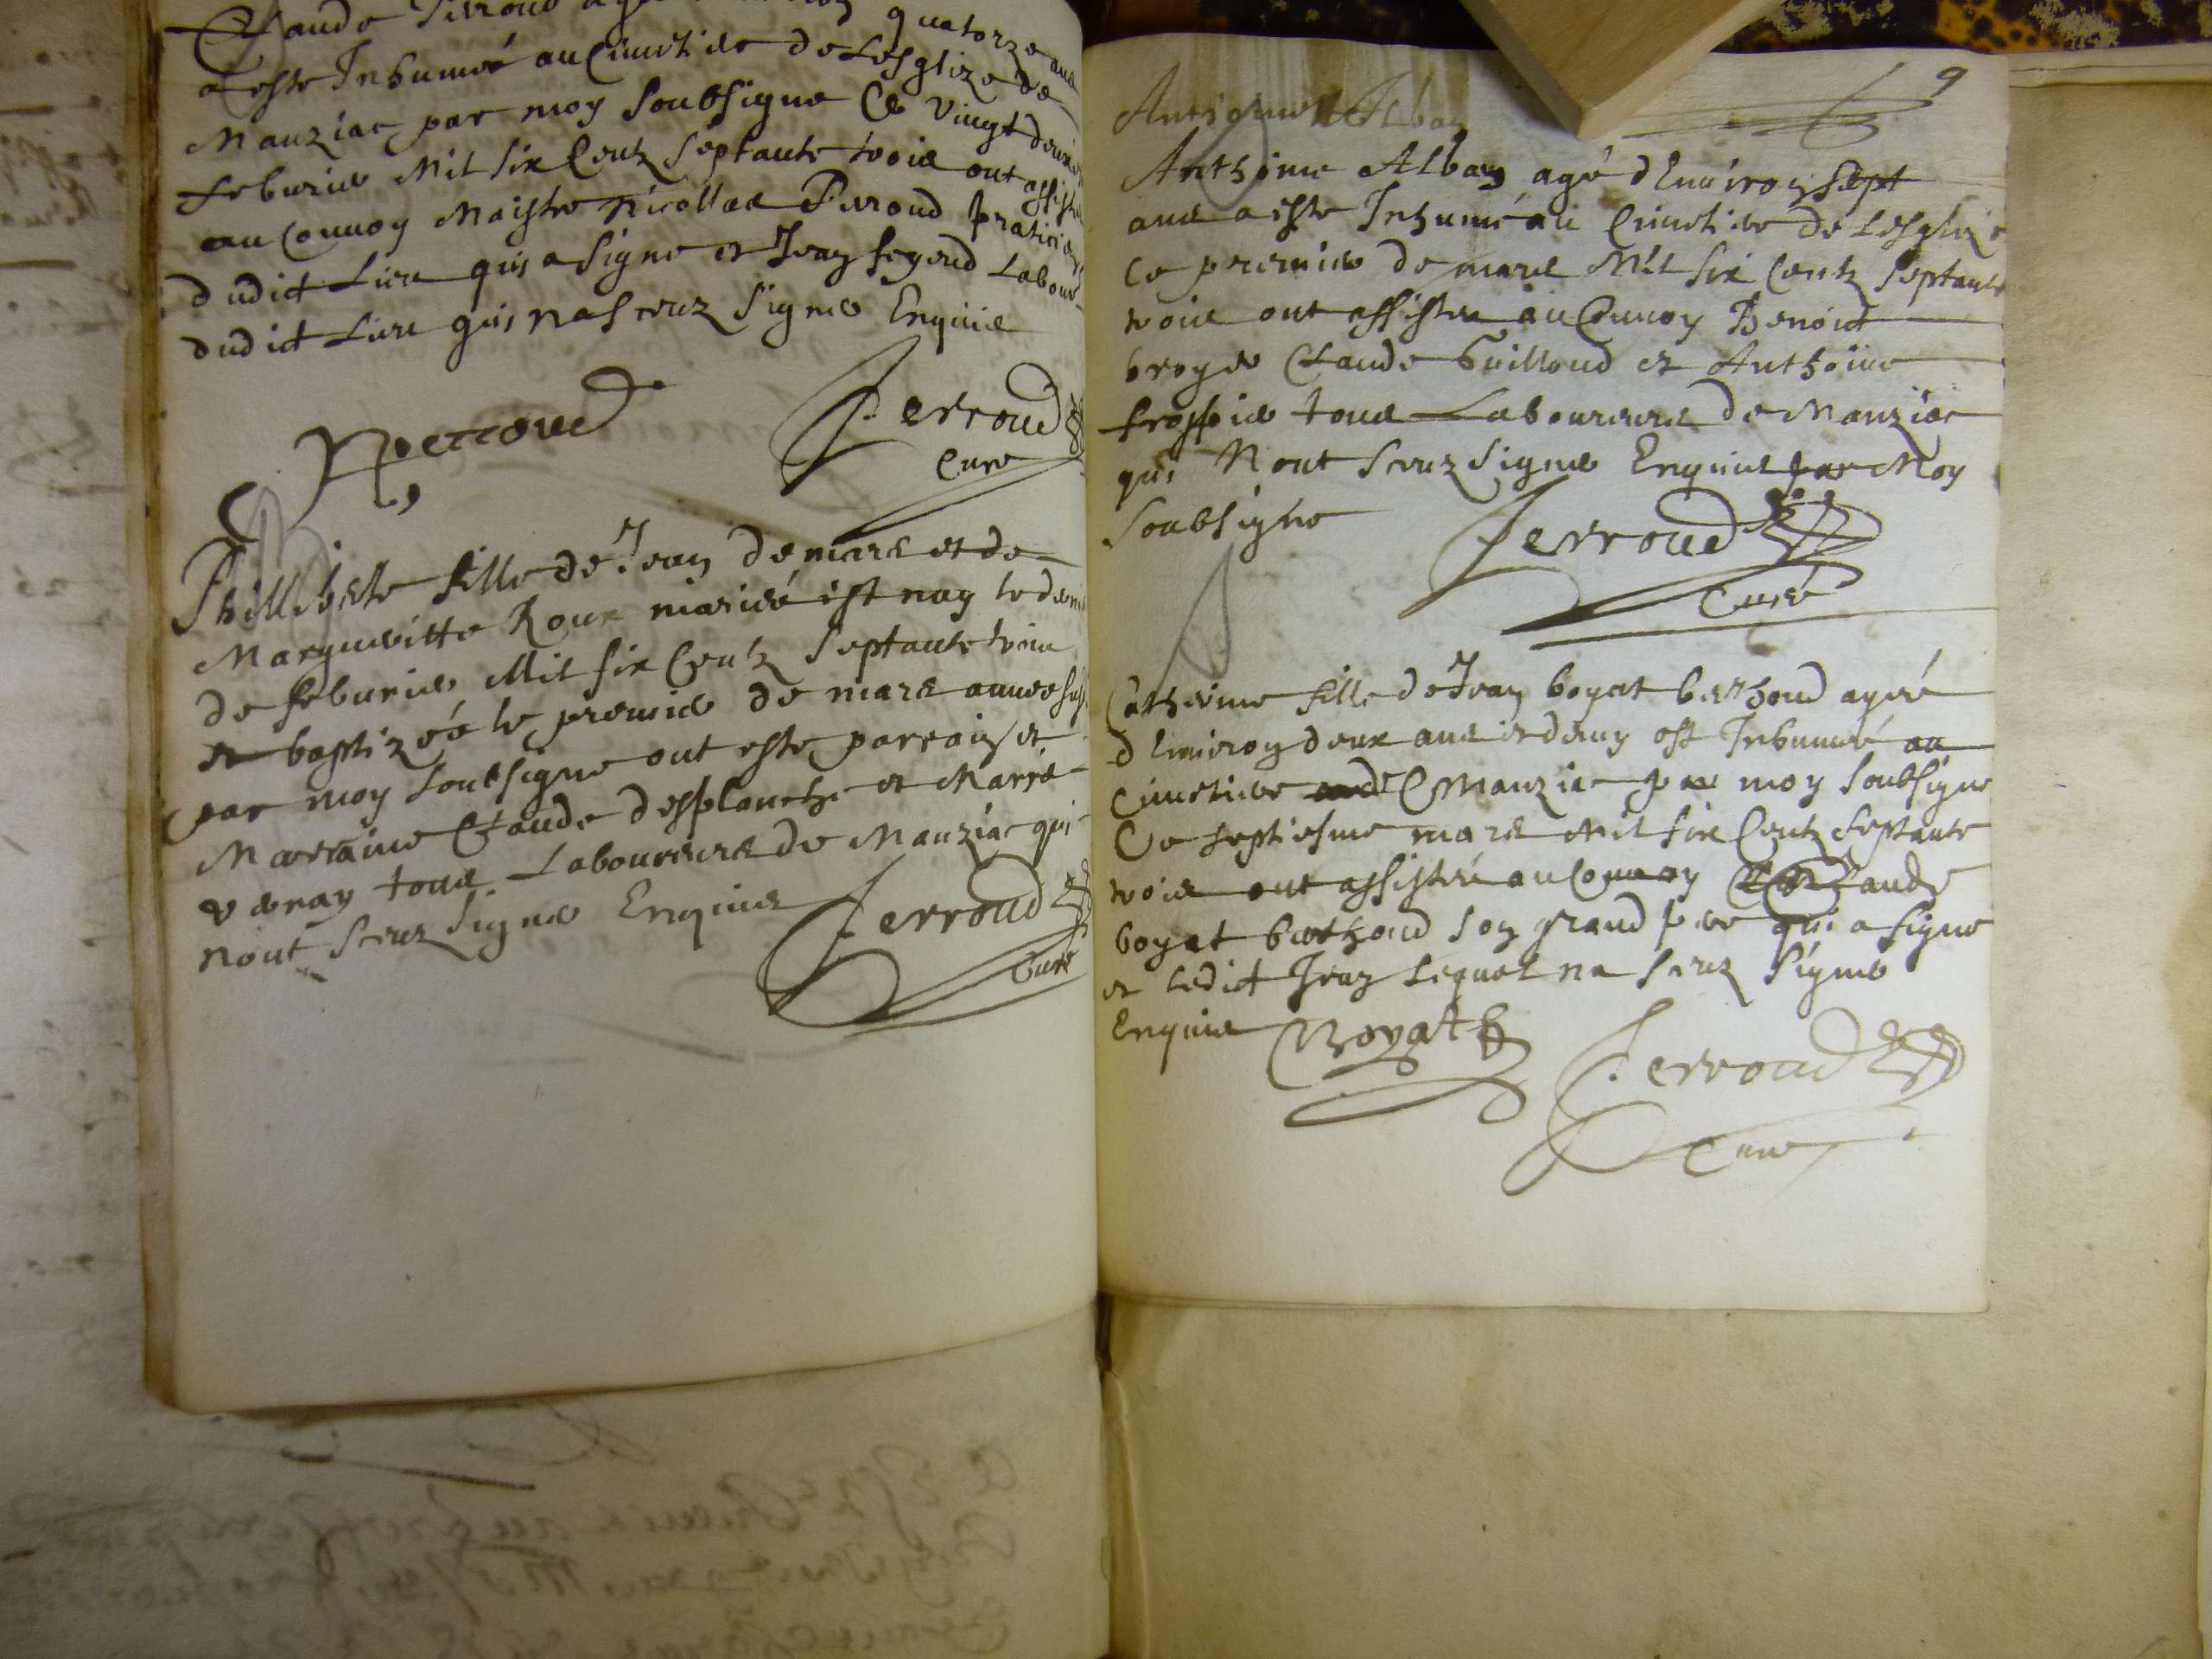 Claude Perroud
quatorze ans
a esté Inhumé au Cimetiere de Lesglize de
Manziac par moy Soubsigne Ce vingt deux
febvrier Mil Six Centz Septante trois ont assiste
au Convoy Maistre Nicollas Perroud praticien
dudict Lieu qui a Signe et Jean feyend Labour
dudict Lieu qui na Sceuz Signer Enquis
Perroud
Perroud
Cure
Philliberte fille de Jean de mars et de
Margueritte Roux mariés est nay le
de febvrier Mil Six Centz Septante trois
et baptizée le premier de mars annee
par moy Soubsigne ont esté parrain et
Marraine Claude desplanche et Marie
veray tous Laboureurs de Manziac qui
nont Sceuz Signer Enquis
Perroud
Cure
9
Anthoine Alban
Anthoine Alban agé d'Environ sept
ans a esté Inhumé au Cimetiere de Lesglize
Ce premier de mars Mil Six Centz Septante
trois ont assisté au Convoy Benoict
broyer Claude Guilloud et Anthoine
frossier tous Laboureurs de Manziac
qui Nont Sceuz Signer Enquis par Moy
Soubsigne
Perroud
Curé
Catherine fille de Jean boyat berthoud agée
d'Environ deux ans et demy est Inhumée au
Cimetiere de Manziac par moy Soubsigne
Ce septiesme mars Mil Six Centz Septante
trois ont assisté au Convoy Claude
boyat berthoud son grand pere qui a Signe
et Ledict Jean Lequel na Sceuz Signer
Enquis Boyat
Perroud
Cure